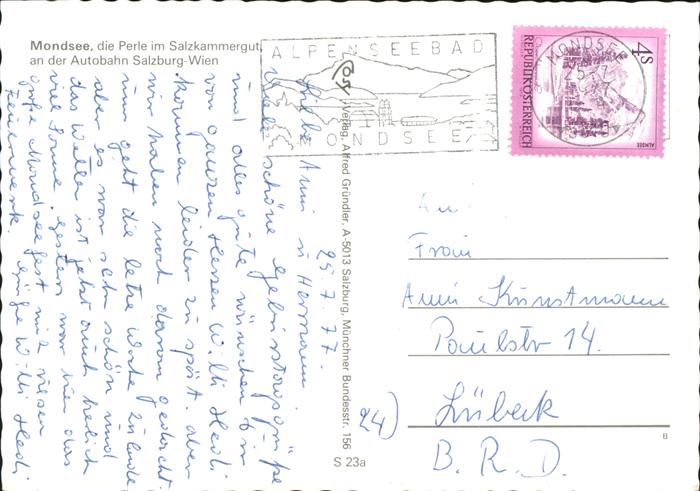 Mondsee, die Perle im Salzkammergut,
an der Autobahn Salzburg-Wien
ALPENSEEBAD
MONDSEE
MONDSEE
25.7.
4s
REPUBLIK ÖSTERREICH
ALMSEE
Verlag Alfred Gründler, A-5013 Salzburg, Münchner Bundesstr. 156
S 23a
B
29.7.77.
Liebe Anni u Hermann.
Viele schöne Geburtstagsgrüße
und alles gute wünschen Dir
von ganzen Herzen Willi Hedi.
kommen leider zu spät. aber
wir haben noch daran gedacht.
nun geht die letze woche zu ende
aber es war sehr schön und
das Wetter ist jetzt auch herlich
viel Sonne. gestern war hier das
große Mondseefest mit riesen
Feuerwerk. Grüße Willi Hedi
An
Frau
Anni Kunstmann
Paulstr 14.
24) Lübeck
B. R. D.